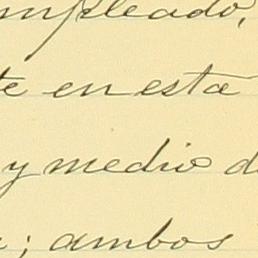 empleado,
te en esta
y medio d
; ambos